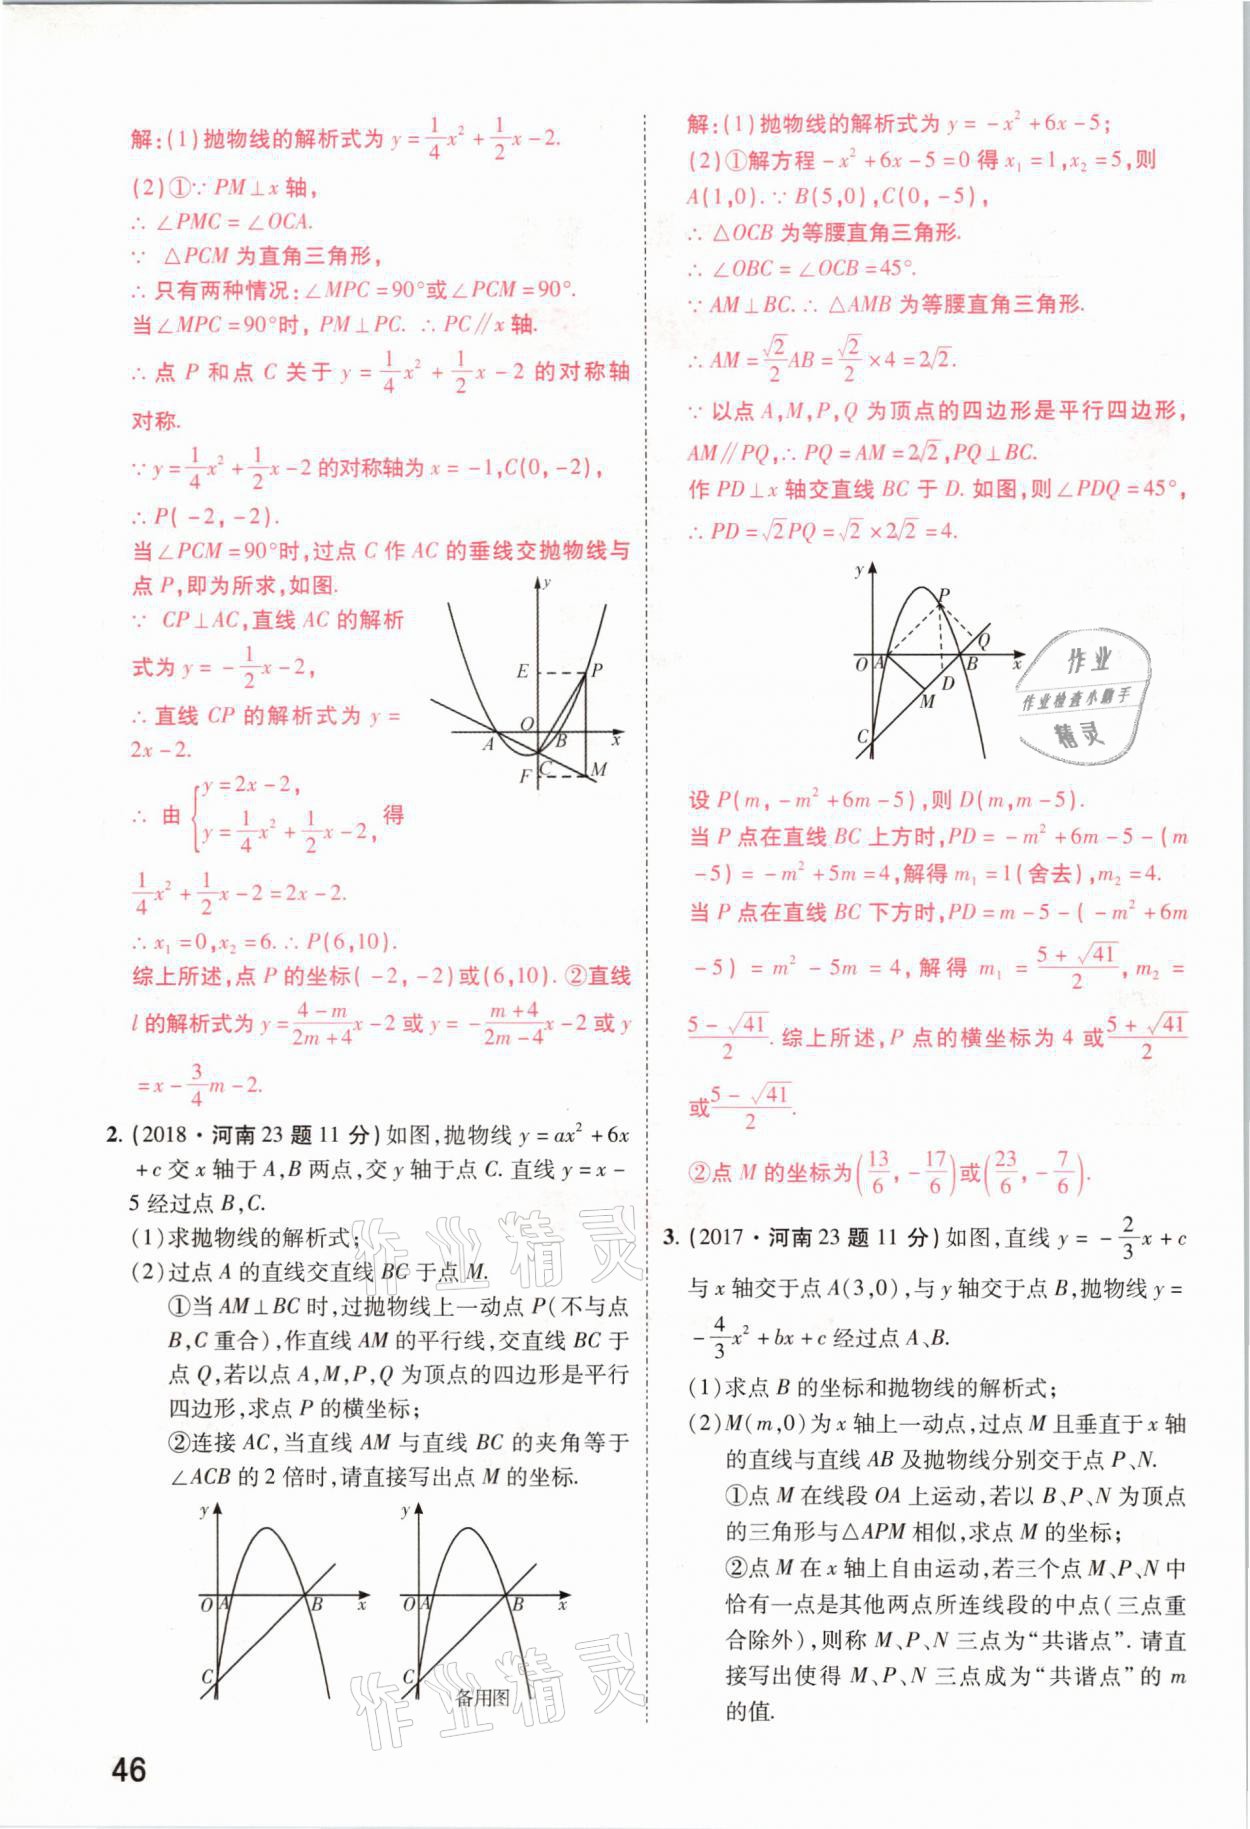 解:(1)抛物线的解析式为 y=1/4x²+1/2x-2.
(2)①∵ PM⊥x 轴,
∴ ∠PMC=∠OCA.
∵ △PCM 为直角三角形,
∴ 只有两种情况:∠MPC=90°或∠PCM=90°.
当∠MPC=90°时, PM⊥PC. ∴ PC∥x 轴.
∴ 点 P 和点 C 关于 y=1/4x²+1/2x-2 的对称轴
对称.
∵ y=1/4x²+1/2x-2 的对称轴为 x=-1,C(0,-2),
∴ P(-2,-2).
当∠PCM=90°时,过点 C 作 AC 的垂线交抛物线与
点 P,即为所求,如图.
∵ CP⊥AC,直线 AC 的解析
式为 y=-1/2x-2,
∴ 直线 CP 的解析式为 y=
2x-2.
∴ 由 { y=2x-2,
y=1/4x²+1/2x-2, 得
1/4x²+1/2x-2=2x-2.
∴ x₁=0,x₂=6. ∴ P(6,10).
综上所述,点 P 的坐标(-2,-2)或(6,10). ②直线
l 的解析式为 y=(4-m)/(2m+4)x-2 或 y=-(m+4)/(2m-4)x-2 或 y
=x-3/4m-2.
y
E
P
O
A
B
x
F
C
M
2. (2018·河南23题11分)如图,抛物线 y=ax²+6x
+c 交 x 轴于 A,B 两点,交 y 轴于点 C. 直线 y=x-
5 经过点 B,C.
(1)求抛物线的解析式;
(2)过点 A 的直线交直线 BC 于点 M.
①当 AM⊥BC 时,过抛物线上一动点 P(不与点
B,C 重合),作直线 AM 的平行线,交直线 BC 于
点 Q,若以点 A,M,P,Q 为顶点的四边形是平行
四边形,求点 P 的横坐标;
②连接 AC,当直线 AM 与直线 BC 的夹角等于
∠ACB 的 2 倍时,请直接写出点 M 的坐标.
y
O A B x
C
y
O A B x
C
备用图
46
解:(1)抛物线的解析式为 y=-x²+6x-5;
(2)①解方程 -x²+6x-5=0 得 x₁=1,x₂=5,则
A(1,0). ∵ B(5,0),C(0,-5),
∴ △OCB 为等腰直角三角形.
∴ ∠OBC=∠OCB=45°.
∵ AM⊥BC. ∴ △AMB 为等腰直角三角形.
∴ AM=√2/2AB=√2/2×4=2√2.
∵ 以点 A,M,P,Q 为顶点的四边形是平行四边形,
AM∥PQ,∴ PQ=AM=2√2,PQ⊥BC.
作 PD⊥x 轴交直线 BC 于 D. 如图,则∠PDQ=45°,
∴ PD=√2PQ=√2×2√2=4.
y
P
Q
O A B x
D
M
C
作业
作业检查小助手
精灵
设 P(m,-m²+6m-5),则 D(m,m-5).
当 P 点在直线 BC 上方时,PD=-m²+6m-5-(m
-5)=-m²+5m=4,解得 m₁=1(舍去),m₂=4.
当 P 点在直线 BC 下方时,PD=m-5-(-m²+6m
-5)=m²-5m=4,解得 m₁=(5+√41)/2,m₂=
(5-√41)/2.综上所述,P 点的横坐标为 4 或(5+√41)/2
或(5-√41)/2.
②点 M 的坐标为(13/6,-17/6)或(23/6,-7/6).
3. (2017·河南23题11分)如图,直线 y=-2/3x+c
与 x 轴交于点 A(3,0),与 y 轴交于点 B,抛物线 y=
-4/3x²+bx+c 经过点 A、B.
(1)求点 B 的坐标和抛物线的解析式;
(2)M(m,0)为 x 轴上一动点,过点 M 且垂直于 x 轴
的直线与直线 AB 及抛物线分别交于点 P、N.
①点 M 在线段 OA 上运动,若以 B、P、N 为顶点
的三角形与△APM 相似,求点 M 的坐标;
②点 M 在 x 轴上自由运动,若三个点 M、P、N 中
恰有一点是其他两点所连线段的中点(三点重
合除外),则称 M、P、N 三点为“共谐点”. 请直
接写出使得 M、P、N 三点成为“共谐点”的 m
的值.
作业精灵
作业精灵